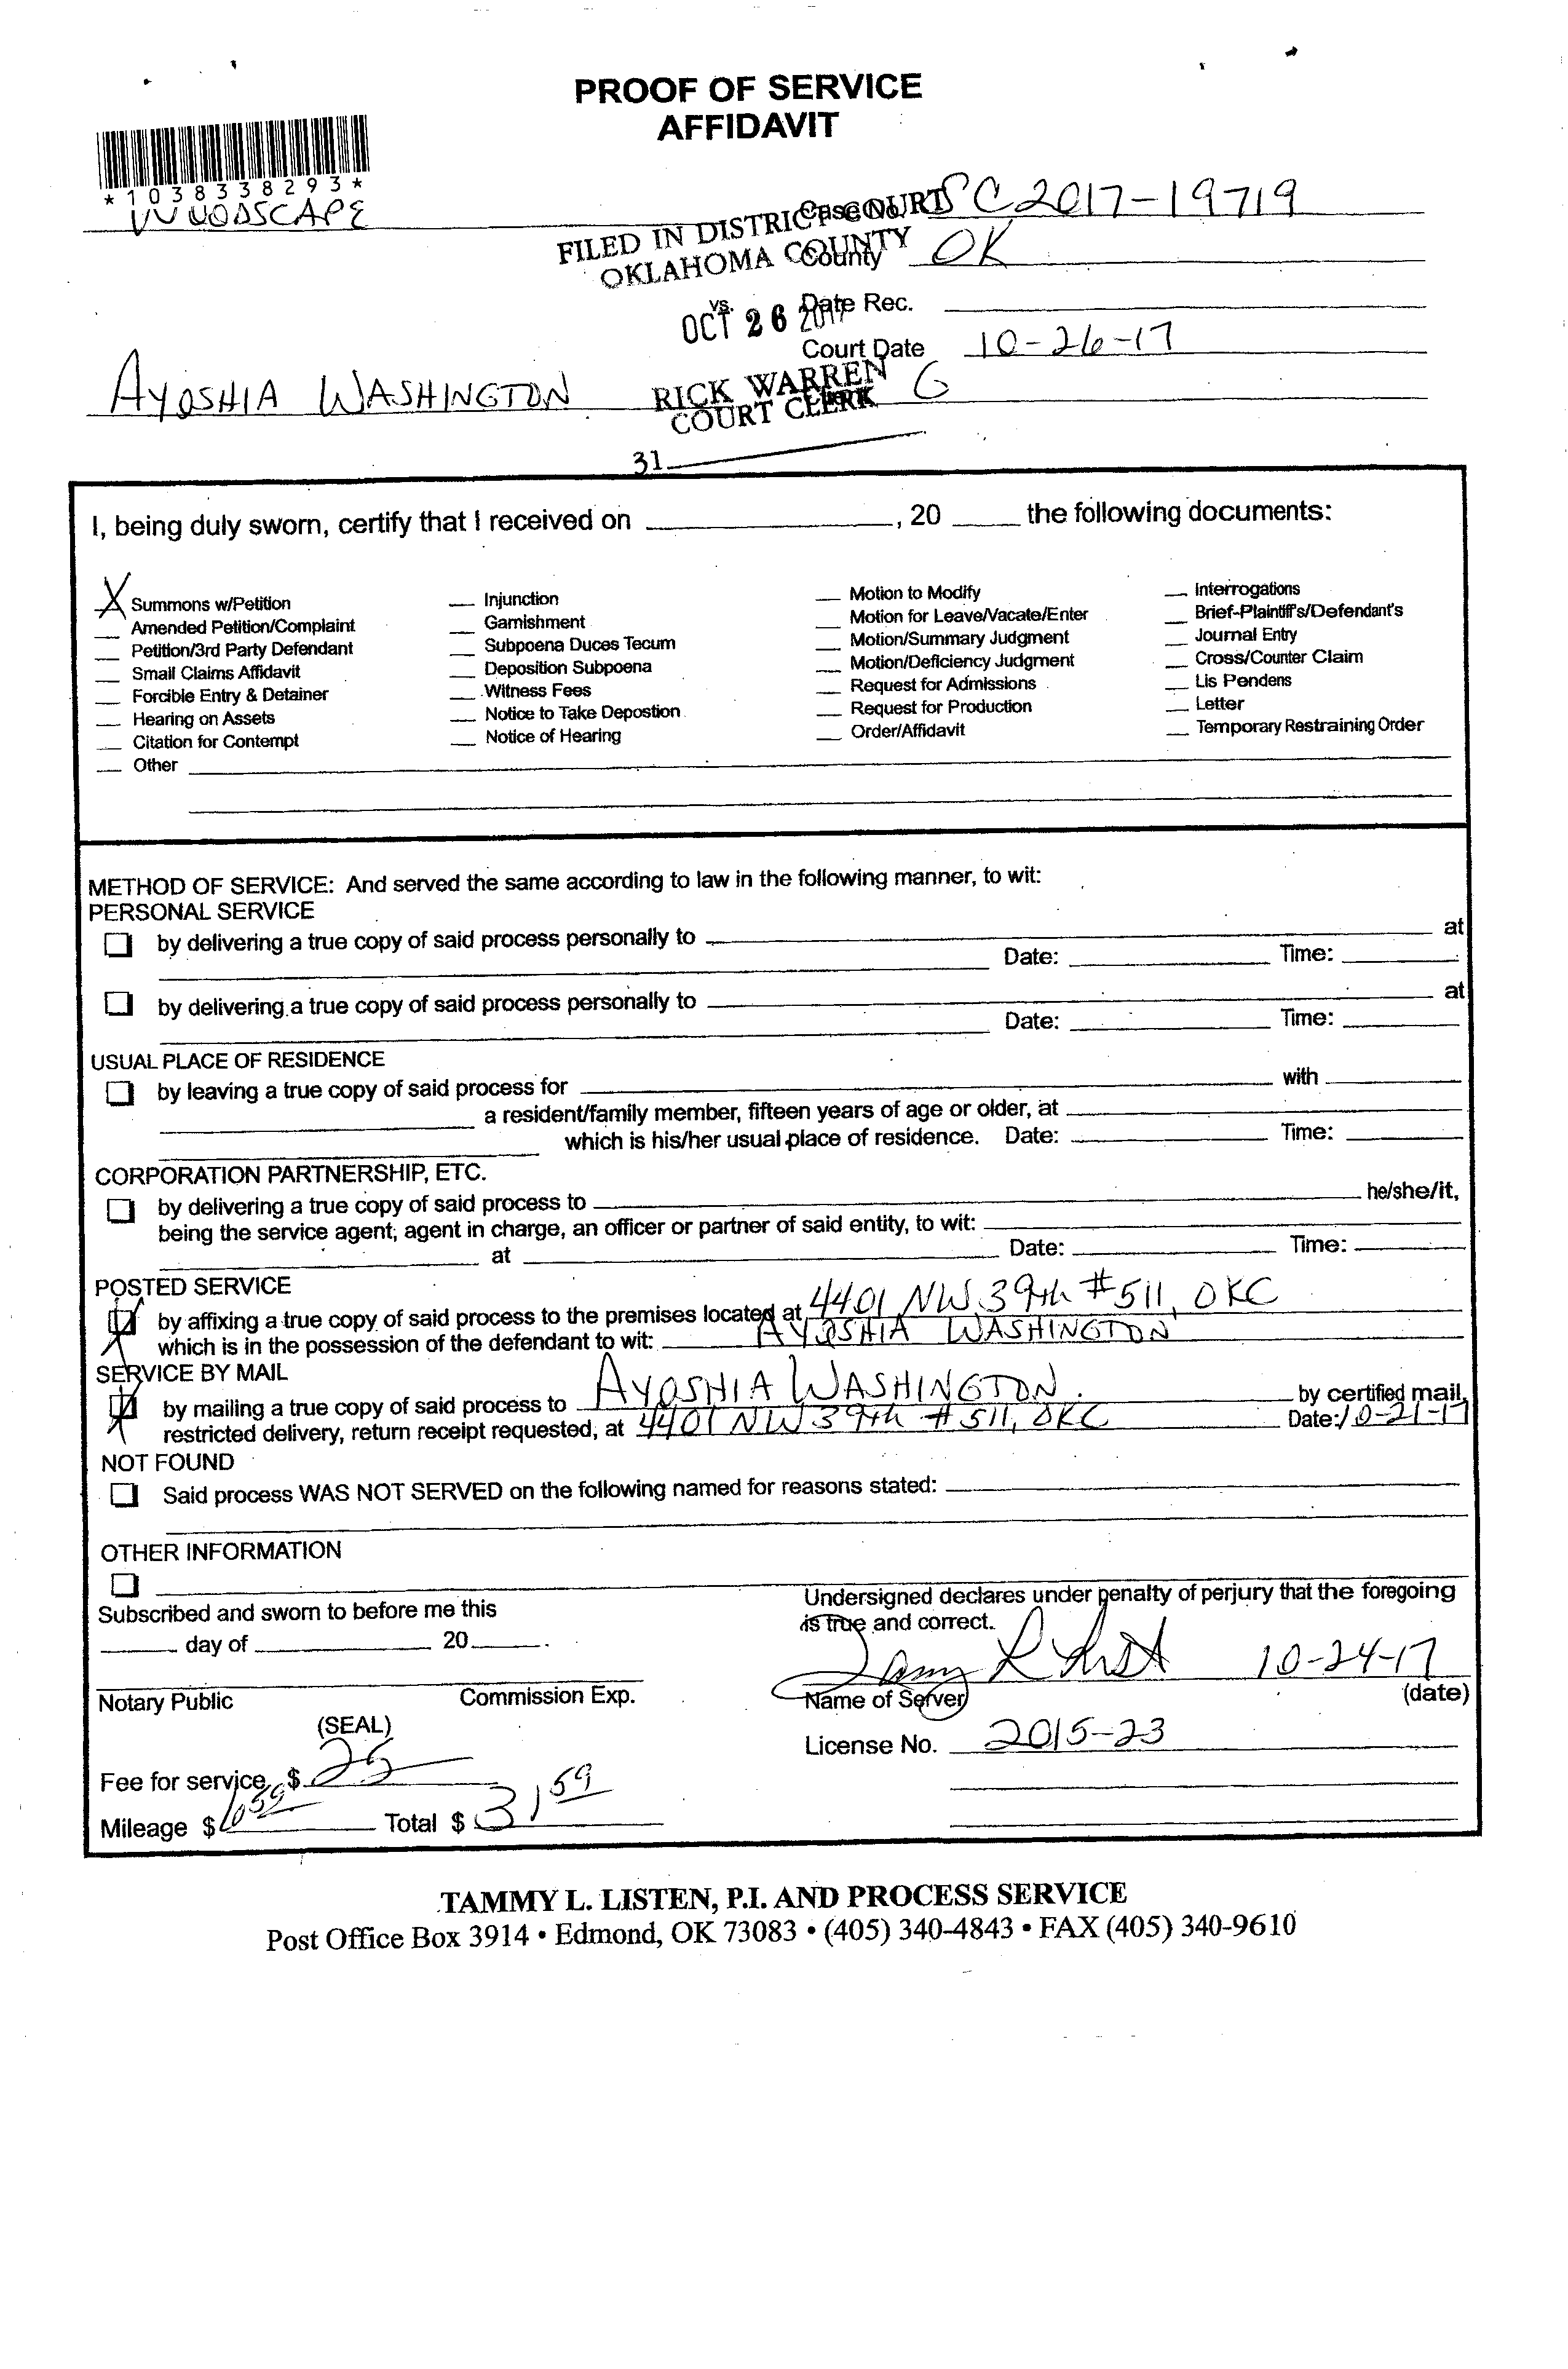 PROOF OF SERVICE
AFFIDAVIT
*1038338293*
WOODSCAPE
Case No. SC 2017-19719
FILED IN DISTRICT COURT
OKLAHOMA COUNTY
County OK
vs.
Date Rec.
OCT 26 2017
Court Date 10-26-17
AYOSHIA WASHINGTON
RICK WARREN
COURT CLERK
G
31
I, being duly sworn, certify that I received on ____, 20 ____ the following documents:
X Summons w/Petition
__ Amended Petition/Complaint
__ Petition/3rd Party Defendant
__ Small Claims Affidavit
__ Forcible Entry & Detainer
__ Hearing on Assets
__ Citation for Contempt
__ Other
__ Injunction
__ Garnishment
__ Subpoena Duces Tecum
__ Deposition Subpoena
__ Witness Fees
__ Notice to Take Depostion
__ Notice of Hearing
__ Motion to Modify
__ Motion for Leave/Vacate/Enter
__ Motion/Summary Judgment
__ Motion/Deficiency Judgment
__ Request for Admissions
__ Request for Production
__ Order/Affidavit
__ Interrogations
__ Brief-Plaintiff's/Defendant's
__ Journal Entry
__ Cross/Counter Claim
__ Lis Pendens
__ Letter
__ Temporary Restraining Order
METHOD OF SERVICE: And served the same according to law in the following manner, to wit:
PERSONAL SERVICE
by delivering a true copy of said process personally to ____ at
____ Date: ____ Time: ____
by delivering a true copy of said process personally to ____ at
____ Date: ____ Time: ____
USUAL PLACE OF RESIDENCE
by leaving a true copy of said process for ____ with ____
____ a resident/family member, fifteen years of age or older, at ____
____ which is his/her usual place of residence. Date: ____ Time: ____
CORPORATION PARTNERSHIP, ETC.
by delivering a true copy of said process to ____ he/she/it,
being the service agent, agent in charge, an officer or partner of said entity, to wit: ____
____ at ____ Date: ____ Time: ____
POSTED SERVICE
by affixing a true copy of said process to the premises located at 4401 NW 39th #511, OKC
which is in the possession of the defendant to wit: AYOSHIA WASHINGTON
SERVICE BY MAIL
by mailing a true copy of said process to AYOSHIA WASHINGTON by certified mail,
restricted delivery, return receipt requested, at 4401 NW 39th #511, OKC Date: 10-21-17
NOT FOUND
Said process WAS NOT SERVED on the following named for reasons stated: ____
OTHER INFORMATION
Undersigned declares under penalty of perjury that the foregoing
is true and correct.
Subscribed and sworn to before me this
____ day of ____ 20____.
10-24-17
Notary Public Commission Exp.
Name of Server (date)
(SEAL)
License No. 2015-23
Fee for service $ 25
Mileage $ 6.59 Total $ 31.59
TAMMY L. LISTEN, P.I. AND PROCESS SERVICE
Post Office Box 3914 • Edmond, OK 73083 • (405) 340-4843 • FAX (405) 340-9610